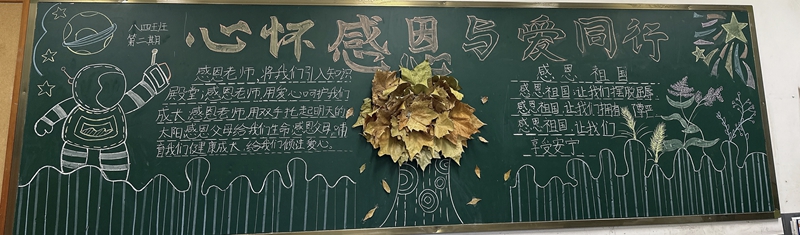 八四班
第二期
心怀感恩与爱同行
感恩老师,将我们引入知识
殿堂,感恩老师,用爱心呵护我们
成长,感恩老师,用双手托起明天的
太阳感恩父母,给我们生命,感恩父母,哺
育我们健康成长,给我们倾注爱心。
感恩祖国
感恩祖国,让我们摆脱屈辱
感恩祖国,让我们拥有尊严
感恩祖国,让我们
享受安宁